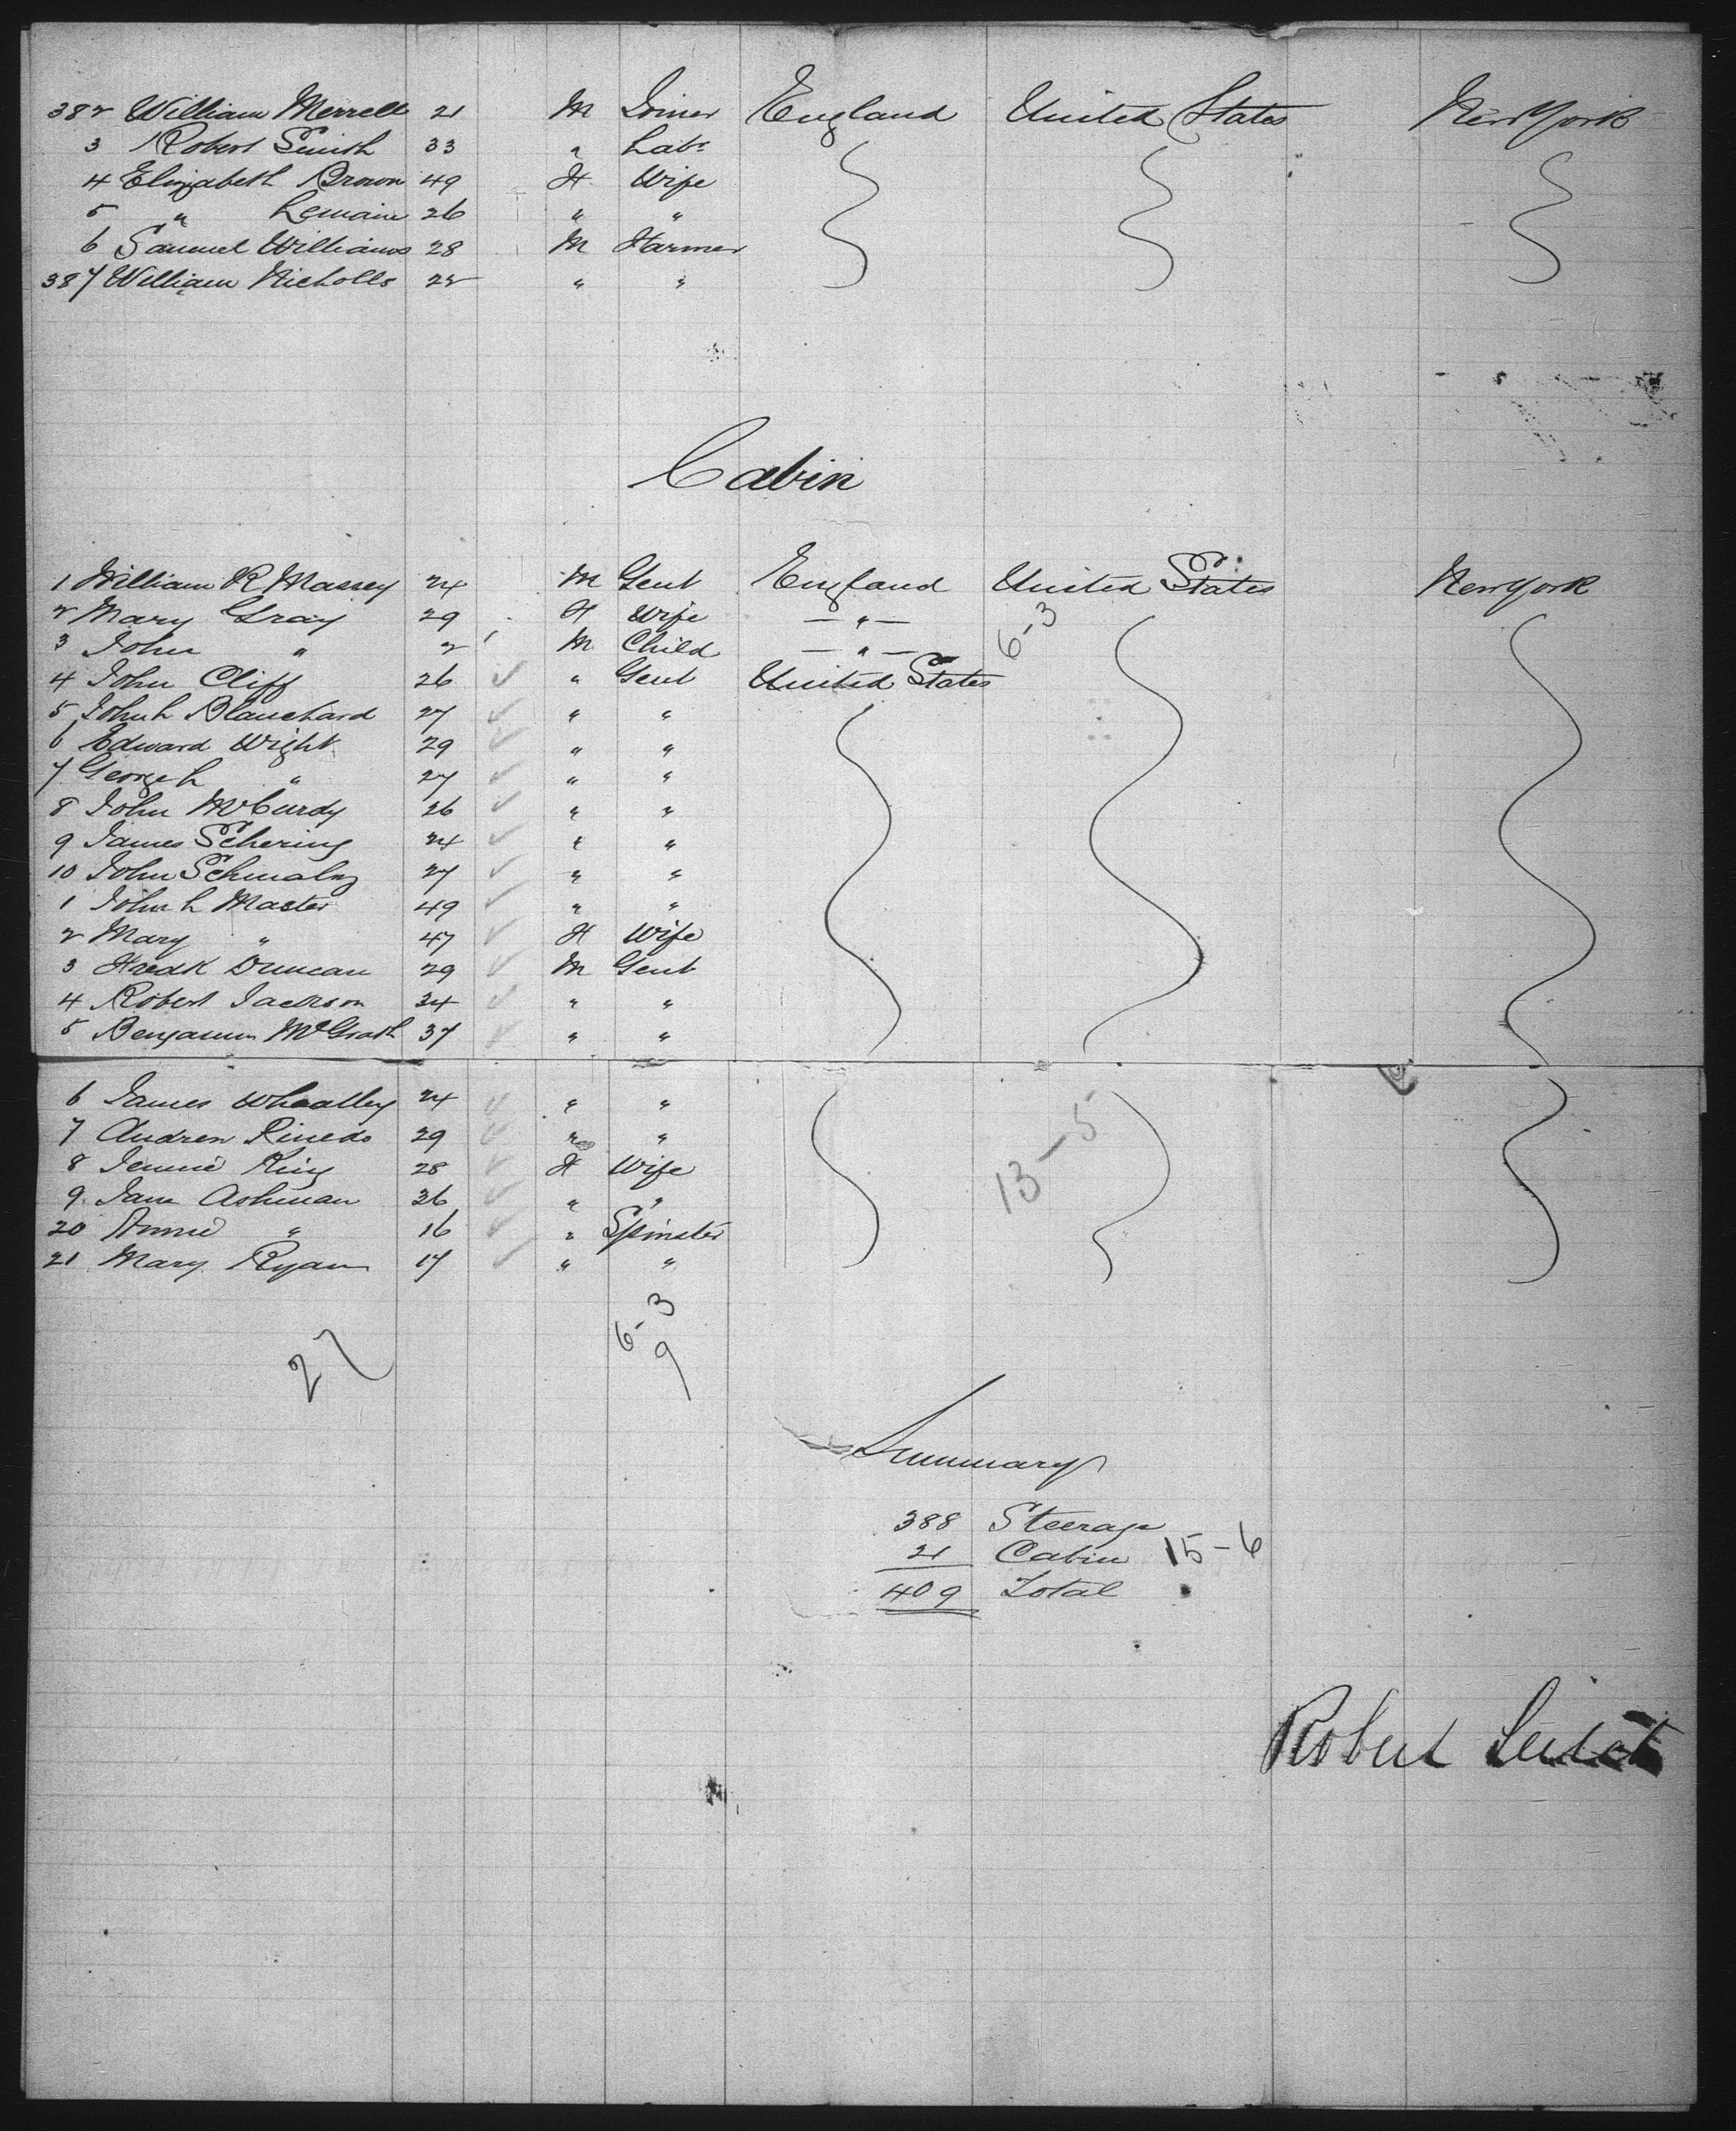 382 William Merrell 21 M Joiner England United States New York
3 Robert Smith 33 " Labr
4 Elizabeth Brown 49 F Wife
5 " Lemain 26 " "
6 Samuel Williams 28 M Farmer
387 William Nicholls 22 " "
Cabin
1 William R Massey 24 M Gent England United States New York
2 Mary Gray 29 F Wife — " —
3 John " 2 M Child — " —
6-3
4 John Cliff 26 " Gent United States
5 John L Blanchard 27 " "
6 Edward Wight 29 " "
7 George L " 27 " "
8 John McCurdy 26 " "
9 James Schering 24 " "
10 John Schmalz 27 " "
1 John L Master 49 " "
2 Mary " 47 F Wife
3 Fredk Duncan 29 M Gent
4 Robert Jackson 34 " "
5 Benjamin McGrath 37 " "
6 James Wheatley 24 " "
7 Andrew Pinedo 29 " "
13-5
8 Jennie King 28 F Wife
9 Jane Ashman 36 " "
20 Annie " 16 " Spinster
21 Mary Ryan 17 " "
6-3
21 9
Summary
388 Steerage
21 Cabin 15-6
409 Total
Robert